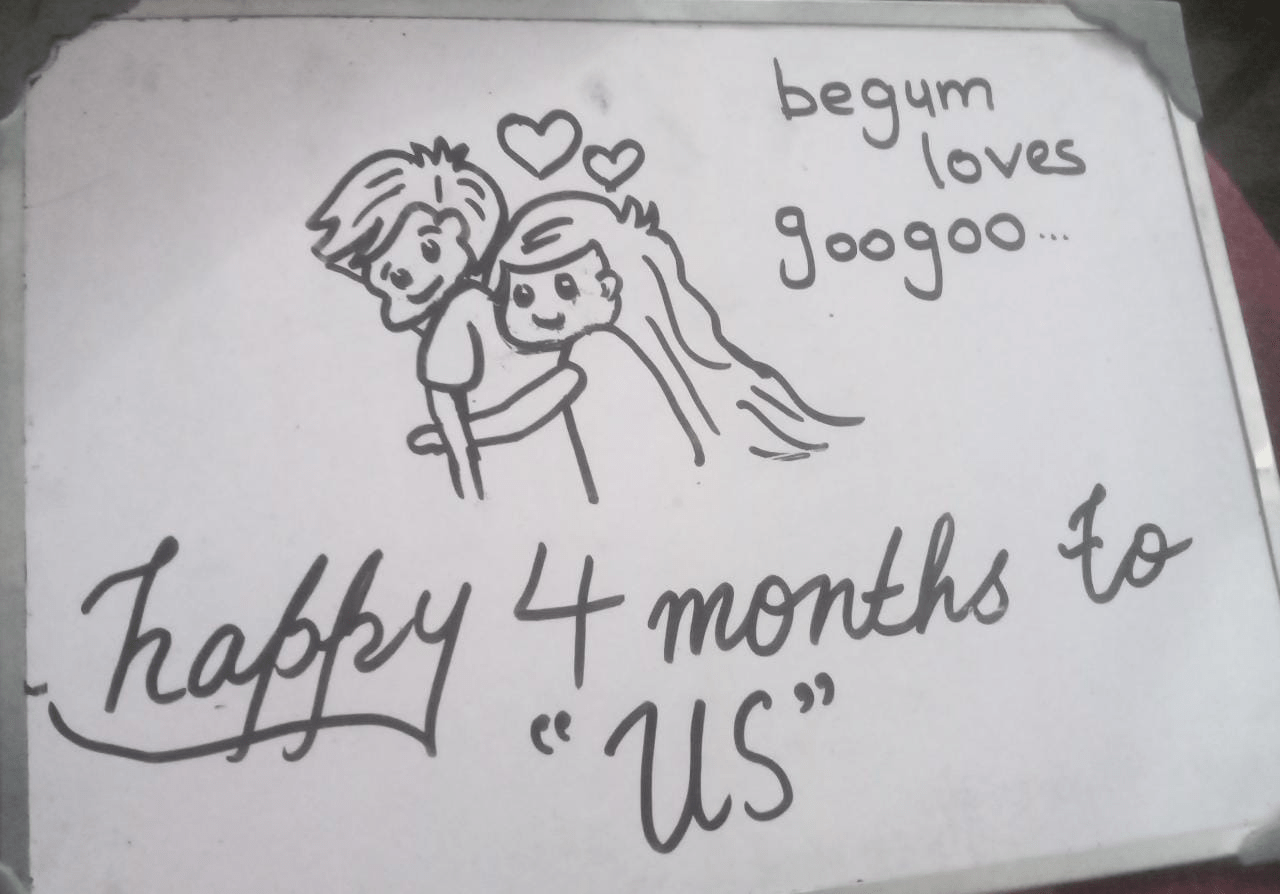 begum
loves
googoo...
happy 4 months to
“US”